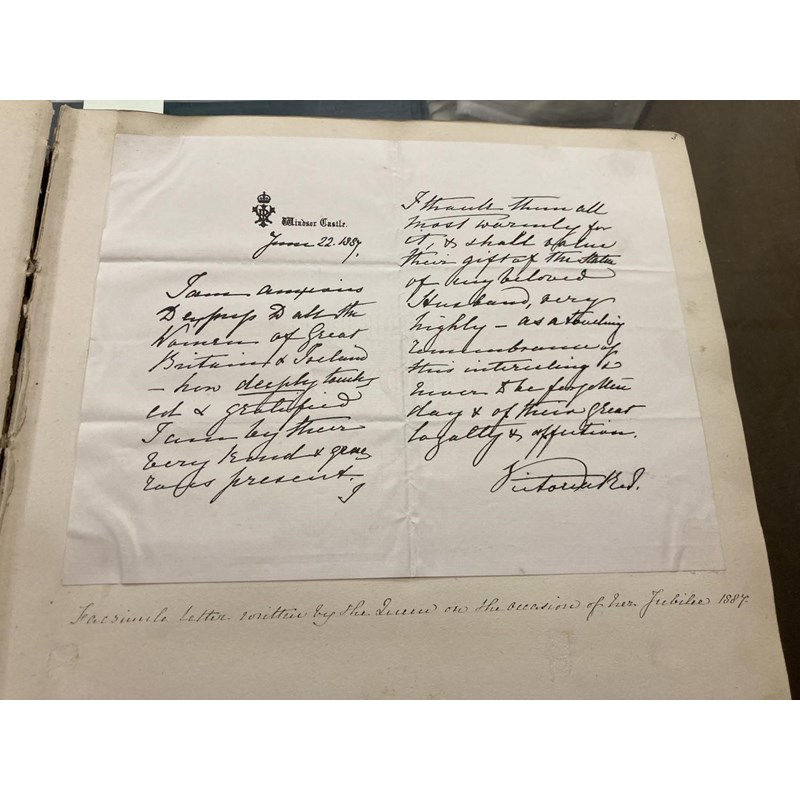 Windsor Castle.
June 22. 1887.
I am anxious
to express to all the
Women of Great
Britain & Ireland
– how deeply touch
ed & gratified
I am by their
very kind & gene
rous present.
I
I thank them all
most warmly for
it, & shall value
their gift of the statue
of my beloved
Husband, very
highly – as a
remembrance of
this interesting &
never to be forgotten
day & of their great
loyalty & affection.
Victoria R.I.
Facsimile letter written by the Queen on the occasion of her Jubilee 1887.